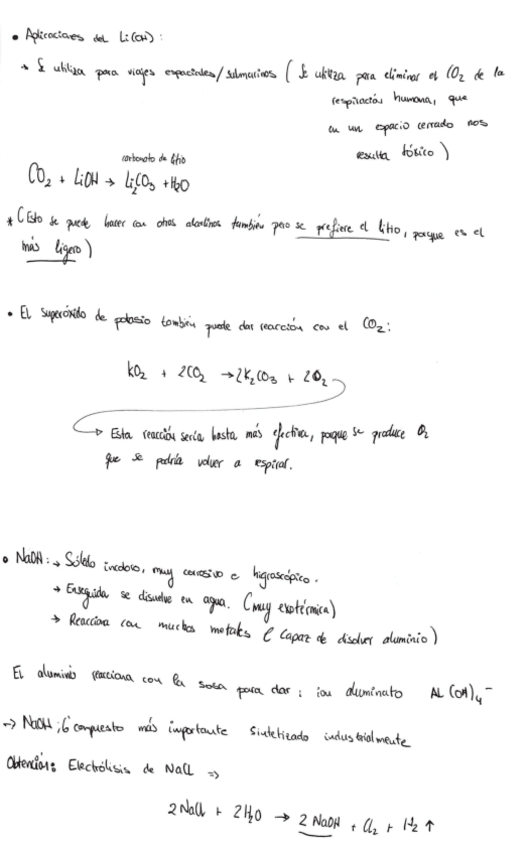 • Aplicaciones del Li(OH):
→ Se utiliza para viajes espaciales/submarinos (Se utiliza para eliminar el CO₂ de la
respiración humana, que
en un espacio cerrado nos
resulta tóxico)
carbonato de litio
CO₂ + LiOH → Li₂CO₃ + H₂O
* (Esto se puede hacer con otros alcalinos también pero se prefiere el litio, porque es el
más ligero)
• El superóxido de potasio también puede dar reacción con el CO₂:
KO₂ + 2CO₂ → 2K₂CO₃ + 2O₂
→ Esta reacción sería hasta más efectiva, porque se produce O₂
que se podría volver a respirar.
• NaOH: → Sólido incoloro, muy corrosivo e higroscópico.
→ Enseguida se disuelve en agua. (muy exotérmica)
→ Reacciona con muchos metales (capaz de disolver aluminio)
El aluminio reacciona con la sosa para dar: ion aluminato AL(OH)₄⁻
→ NaOH; 6º compuesto más importante sintetizado industrialmente
Obtención: Electrólisis de NaCl ⇒
2 NaCl + 2H₂O → 2 NaOH + Cl₂ + H₂ ↑